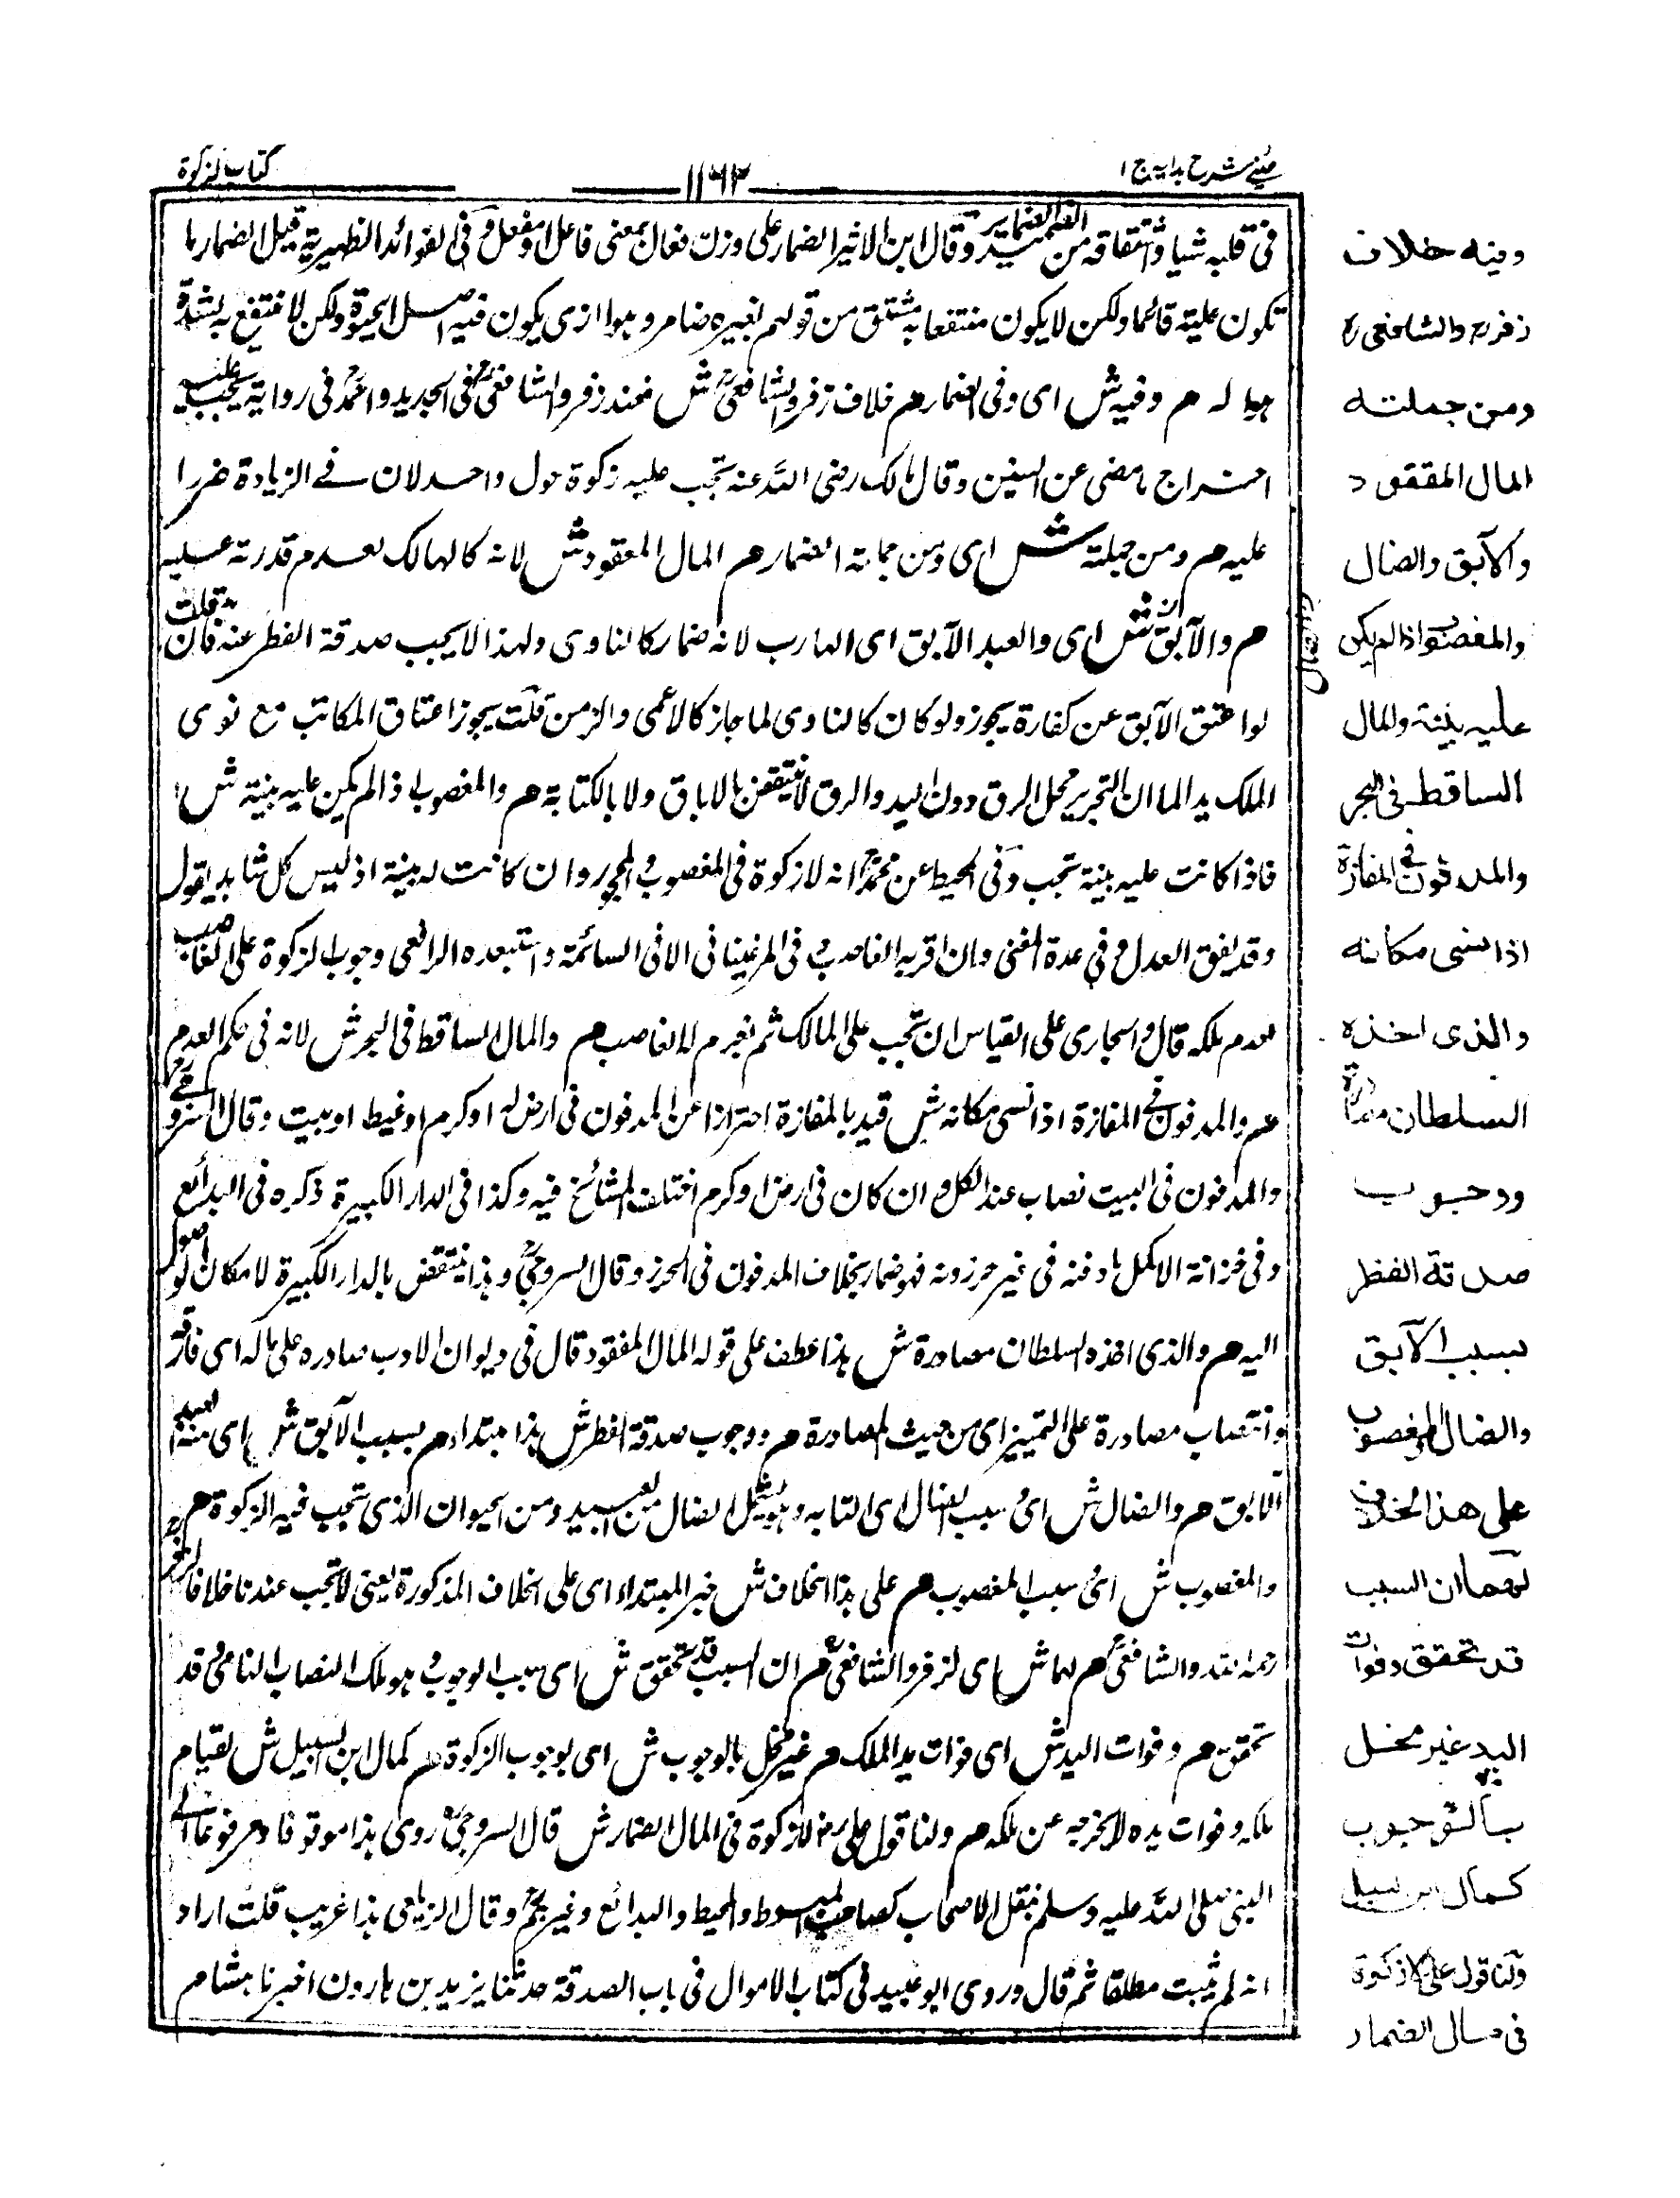 عینی شرح ہدایہ ج ۱
۱۱۶۲
کتاب الزکوة
فی قلبه شیا واشتقاقه من وقال ابن الاثیر الضمار علی وزن فعال بمعنی فاعل او مفعل وفی الفوائد الظهیریة قیل الضمار ما
تکون علیة قائما ولکن لا یکون منتفعا به مشتق من قولهم بعیره ضامر وهو الذی یکون فیه اصل الحیوة ولکن لا ینتفع به لشدة
هزاله م وفیه ش ای وفی الضمار م خلاف زفر والشافعیؒ ش فعند زفر والشافعیؒ فی الجدید واحمدؒ فی روایة یجب علیه
اخراج ما مضی عن السنین وقال مالک رضی الله عنه تجب علیه زکوة حول واحد لان فی الزیادة ضررا
علیه م ومن جملته ش ای ومن جملة الضمار م المال المفقود ش لانه کالهالک لعدم قدرته علیه
م والآبق ش ای والعبد الآبق ای الهارب لانه ضمار کالناوی ولهذا لا یجب صدقة الفطر عنه فان قلت
لو اعتق الآبق عن کفارة یجوز ولو کان کالناوی لما جاز کالاعمی والزمن قلت یجوز اعتاق المکاتب مع نوی
الملک ید الما ان التحریر محل الرق دون الید والرق لا ینتقض بالاباق ولا بالکتابة م والمغصوب اذا لم یکن علیه بینة ش
فاذا کانت علیه بینة تجب وفی المحیط عن محمدؒ انه لا زکوة فی المغصوب والمجور وان کانت له بینة اذ لیس کل شاهد یقول
وقد یفق العدل وفی عدة المفتی وان اقر به الغاصب وفی المرغینانی الا فی السائمة واستبعده الرافعی وجوب الزکوة علی الغاصب
لعدم ملکه قال والجاری علی القیاس ان تجب علی المالک ثم یغرم له الغاصب م والمال الساقط فی البحر ش لانه فی حکم العدم
م والمدفون فی المفازة اذا نسی مکانه ش قید بالمفازة احترازا عن المدفون فی ارض له او کرم او غیط او بیت وقال السروجی
والمدفون فی البیت نصاب عند الکل وان کان فی ارض او کرم اختلف المشائخ فیه وکذا فی الدار الکبیرة ذکره فی البدائع
وفی خزانة الاکمل ما دفنه فی غیر حرزه فهو ضمار بخلاف المدفون فی الحرز وقال السروجیؒ وهذا ینتقض بالدار الکبیرة لامکان الوصول
الیه م والذی اخذه السلطان مصادرة ش هذا عطف علی قوله المال المفقود قال فی دیوان الادب صادره علی ماله ای فارقه
وانتصاب مصادرة علی التمییز ای من حیث المصادرة م ووجوب صدقة الفطر ش هذا مبتدا م بسبب الآبق ش ای العبد
الآبق م والضال ش ای وبسبب الضال ای التابه وهو یشمل الضال من العبید ومن الحیوان الذی تجب فیه الزکوة م
والمغصوب ش ای وبسبب المغصوب م علی هذا الخلاف ش خبر المبتداء ای علی الخلاف المذکورة یعنی لا تجب عندنا خلافا لزفر
رحمه الله والشافعیؒ م لهما ش ای لزفر والشافعیؒ م ان السبب قد تحقق ش ای سبب الوجوب وهو ملک النصاب النامی وقد
تحقق م وفوات الید ش ای فوات ید الملک م غیر مخل بالوجوب ش ای بوجوب الزکوة م کمال ابن السبیل ش لقیام
ملکه وفوات یده لا یخرجه عن ملکه م ولنا قول علیؓ لا زکوة فی المال الضمار ش قال السروجیؒ روی هذا موقوفا ومرفوعا الی
النبی صلی الله علیه وسلم بنقل الاصحاب کصاحب المبسوط والمحیط والبدائع وغیرهم وقال الزیلعی هذا غریب قلت اراد
انه لم یثبت مطلقا ثم قال وروی ابو عبید فی کتاب الاموال فی باب الصدقة حدثنا یزید بن هارون اخبرنا هشام
وفیه خلاف
زفرؒ والشافعیؒ
ومن جملته
المال المفقود
والآبق والضال
والمغصوب اذا لم یکن
علیه بینة والمال
الساقط فی البحر
والمدفون فی المفازة
اذا نسی مکانه
والذی اخذه
السلطان مصادرة
ووجوب
صدقة الفطر
بسبب الآبق
والضال والمغصوب
علی هذا الخلاف
لهما ان السبب
قد تحقق وفوات
الید غیر مخل
بالوجوب
کمال ابن السبیل
ولنا قول علیؓ لا زکوة
فی مال الضمار